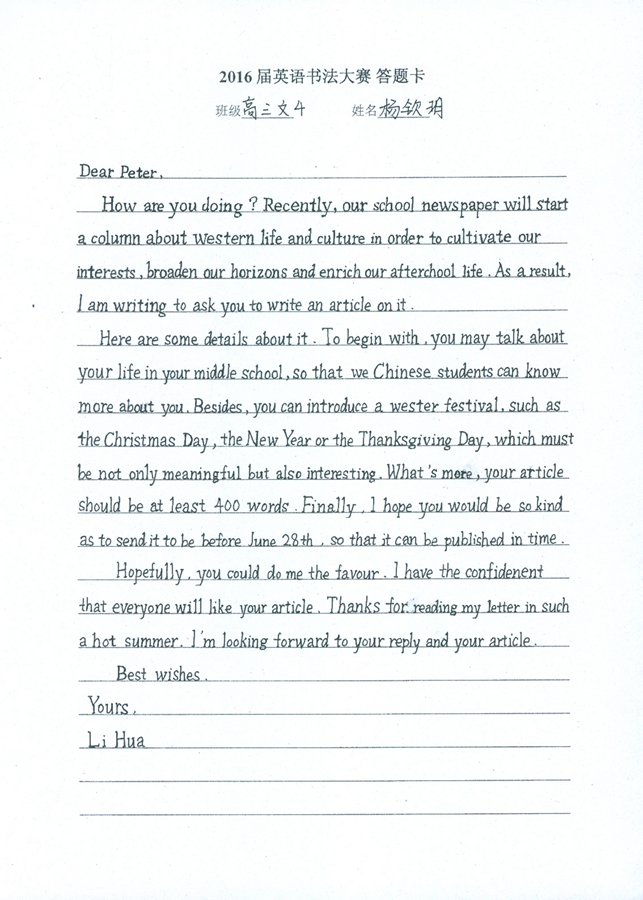 2016 届英语书法大赛 答题卡
班级 高三文4 姓名 杨钦玥
Dear Peter,
How are you doing? Recently, our school newspaper will start
a column about western life and culture in order to cultivate our
interests, broaden our horizons and enrich our afterchool life. As a result,
I am writing to ask you to write an article on it.
Here are some details about it. To begin with, you may talk about
your life in your middle school, so that we Chinese students can know
more about you. Besides, you can introduce a wester festival, such as
the Christmas Day, the New Year or the Thanksgiving Day, which must
be not only meaningful but also interesting. What's more, your article
should be at least 400 words. Finally, I hope you would be so kind
as to send it to be before June 28th, so that it can be published in time.
Hopefully, you could do me the favour. I have the confidenent
that everyone will like your article. Thanks for reading my letter in such
a hot summer. I'm looking forward to your reply and your article.
Best wishes.
Yours,
Li Hua